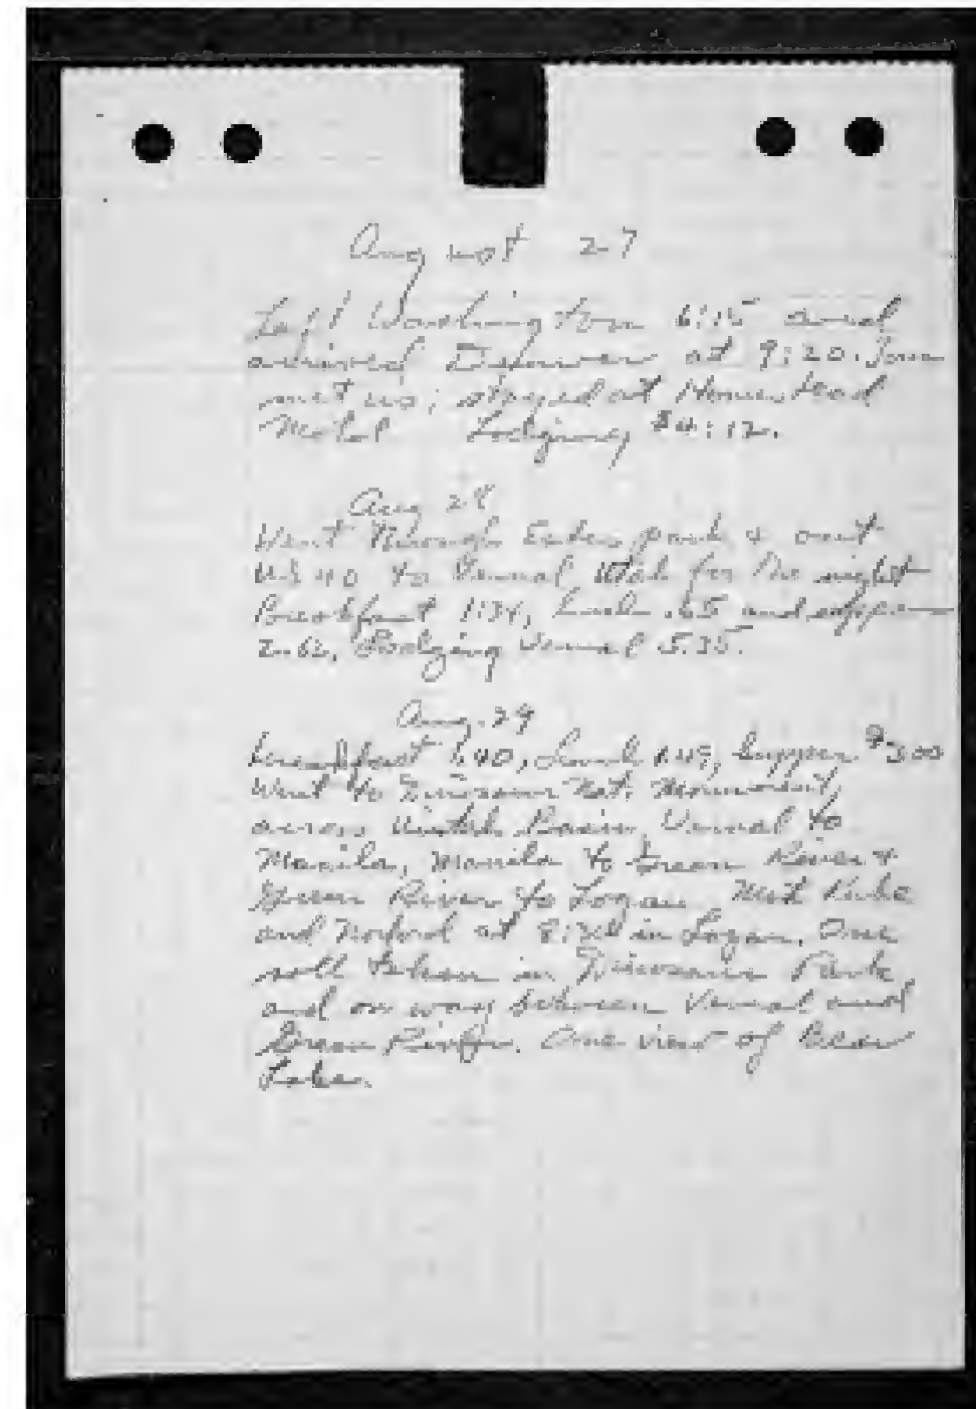 August 27
Left Washington 6:15 and
arrived Denver at 9:20.
met us; stayed at Homestead
Motel Lodging $4:12.
Aug 28
Went through Estes park & over
US 40 to Vernal Utah for the night
Breakfast 1:34, lunch .65 and supper
2.62, Lodging Vernal 5.35.
Aug. 29
breakfast 1.40, lunch 1.49, Supper $3.00
Went to Dinosaur Nat. Monument,
across Uintah Basin, Vernal to
Manila, Manila to Green River &
Green River to Logan. Met
and at in Logan. One
roll taken in Dinosaur Park
and on way between Vernal and
Green River. One view of Bear
Lake.